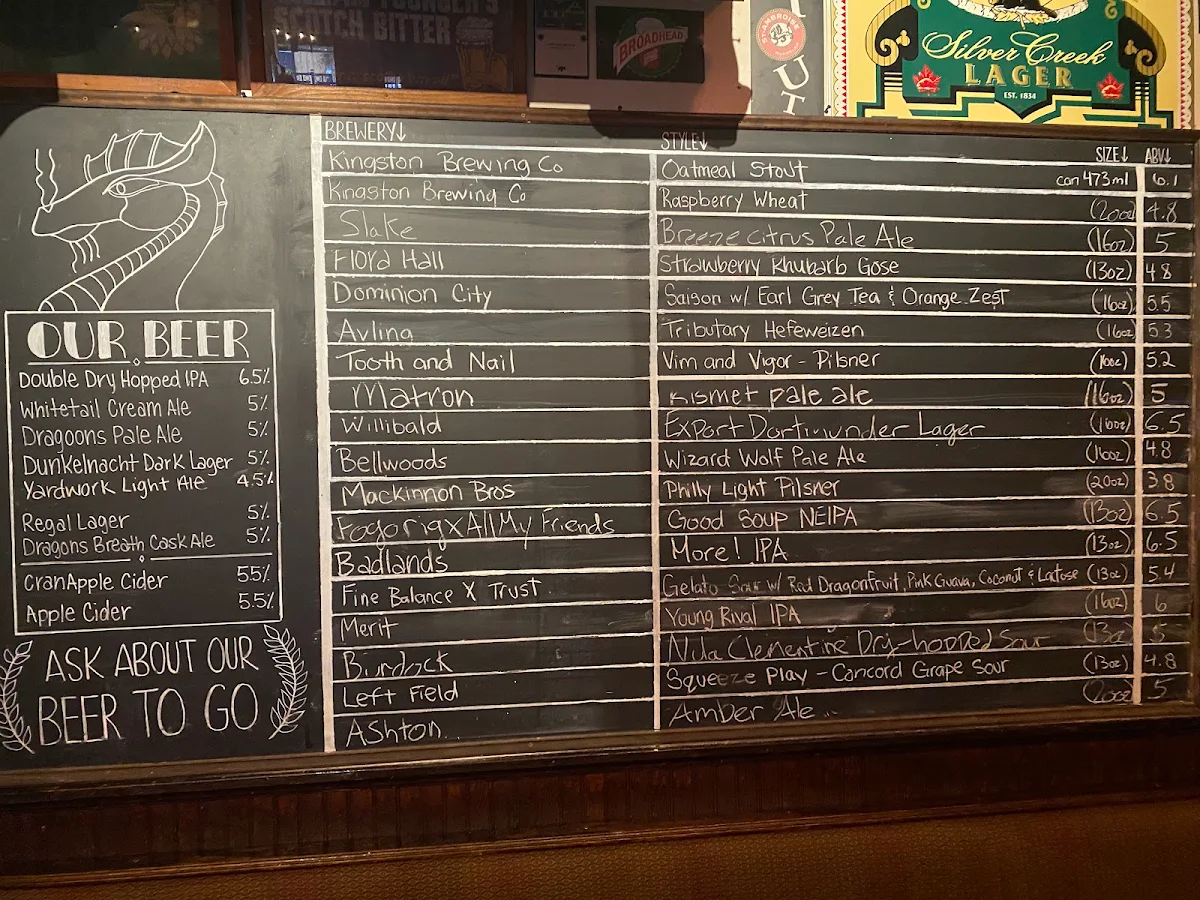 YOUNGER'S
SCOTCH BITTER
BROADHEAD
ST-AMBROISE
UT
Silver Creek
LAGER
EST. 1834
BREWERY↓ STYLE↓ SIZE↓ ABV↓
Kingston Brewing Co Oatmeal Stout can 473ml 6.1
Kingston Brewing Co Raspberry Wheat (20oz) 4.8
Slake Breeze Citrus Pale Ale (16oz) 5
Flora Hall Strawberry Rhubarb Gose (13oz) 4.8
Dominion City Saison w/ Earl Grey Tea & Orange Zest (16oz) 5.5
Avling Tributary Hefeweizen (16oz) 5.3
Tooth and Nail Vim and Vigor - Pilsner (16oz) 5.2
Matron Kismet pale ale (16oz) 5
Willibald Export Dortmunder Lager (16oz) 6.5
Bellwoods Wizard Wolf Pale Ale (16oz) 4.8
Mackinnon Bros Philly Light Pilsner (20oz) 3.8
Fogorig x All My Friends Good Soup NEIPA (13oz) 6.5
Badlands More! IPA (13oz) 6.5
Fine Balance X Trust Gelato Sour w/ Red Dragonfruit, Pink Guava, Coconut & Lactose (13oz) 5.4
Merit Young Rival IPA (16oz) 6
Burdock Nila Clementine Dry-hopped Sour (13oz) 5
Left Field Squeeze Play - Concord Grape Sour (13oz) 4.8
Ashton Amber Ale (20oz) 5
OUR BEER
Double Dry Hopped IPA 6.5%
Whitetail Cream Ale 5%
Dragoons Pale Ale 5%
Dunkelnacht Dark Lager 5%
Yardwork Light Ale 4.5%
Regal Lager 5%
Dragons Breath Cask Ale 5%
CranApple Cider 5.5%
Apple Cider 5.5%
ASK ABOUT OUR
BEER TO GO